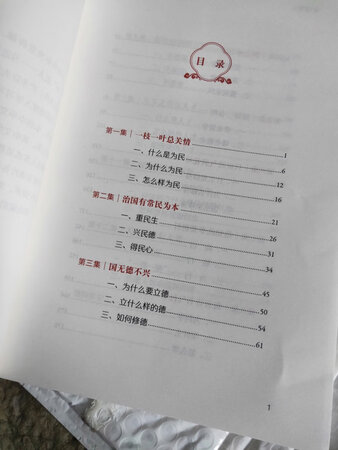 目录
第一集 | 一枝一叶总关情 1
一、什么是为民 6
二、为什么为民 12
三、怎么样为民 16
第二集 | 治国有常民为本 21
一、重民生 26
二、兴民德 31
三、得民心 34
第三集 | 国无德不兴 45
一、为什么要立德 50
二、立什么样的德 54
三、如何修德 61
1